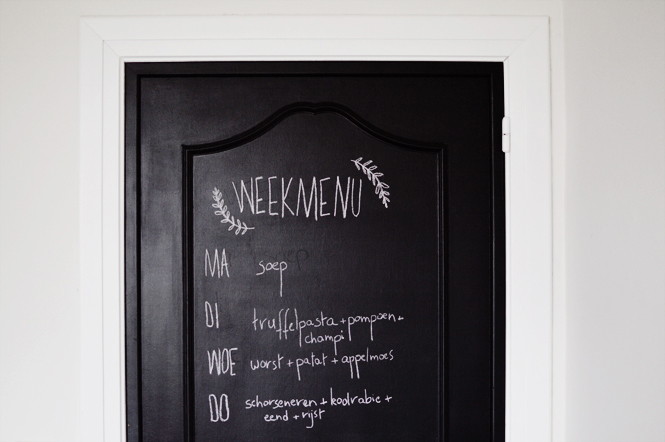 WEEKMENU
MA soep
DI truffelpasta + pompoen +
champi
WOE worst + patat + appelmoes
DO schorseneren + koolrabie +
eend + rijst